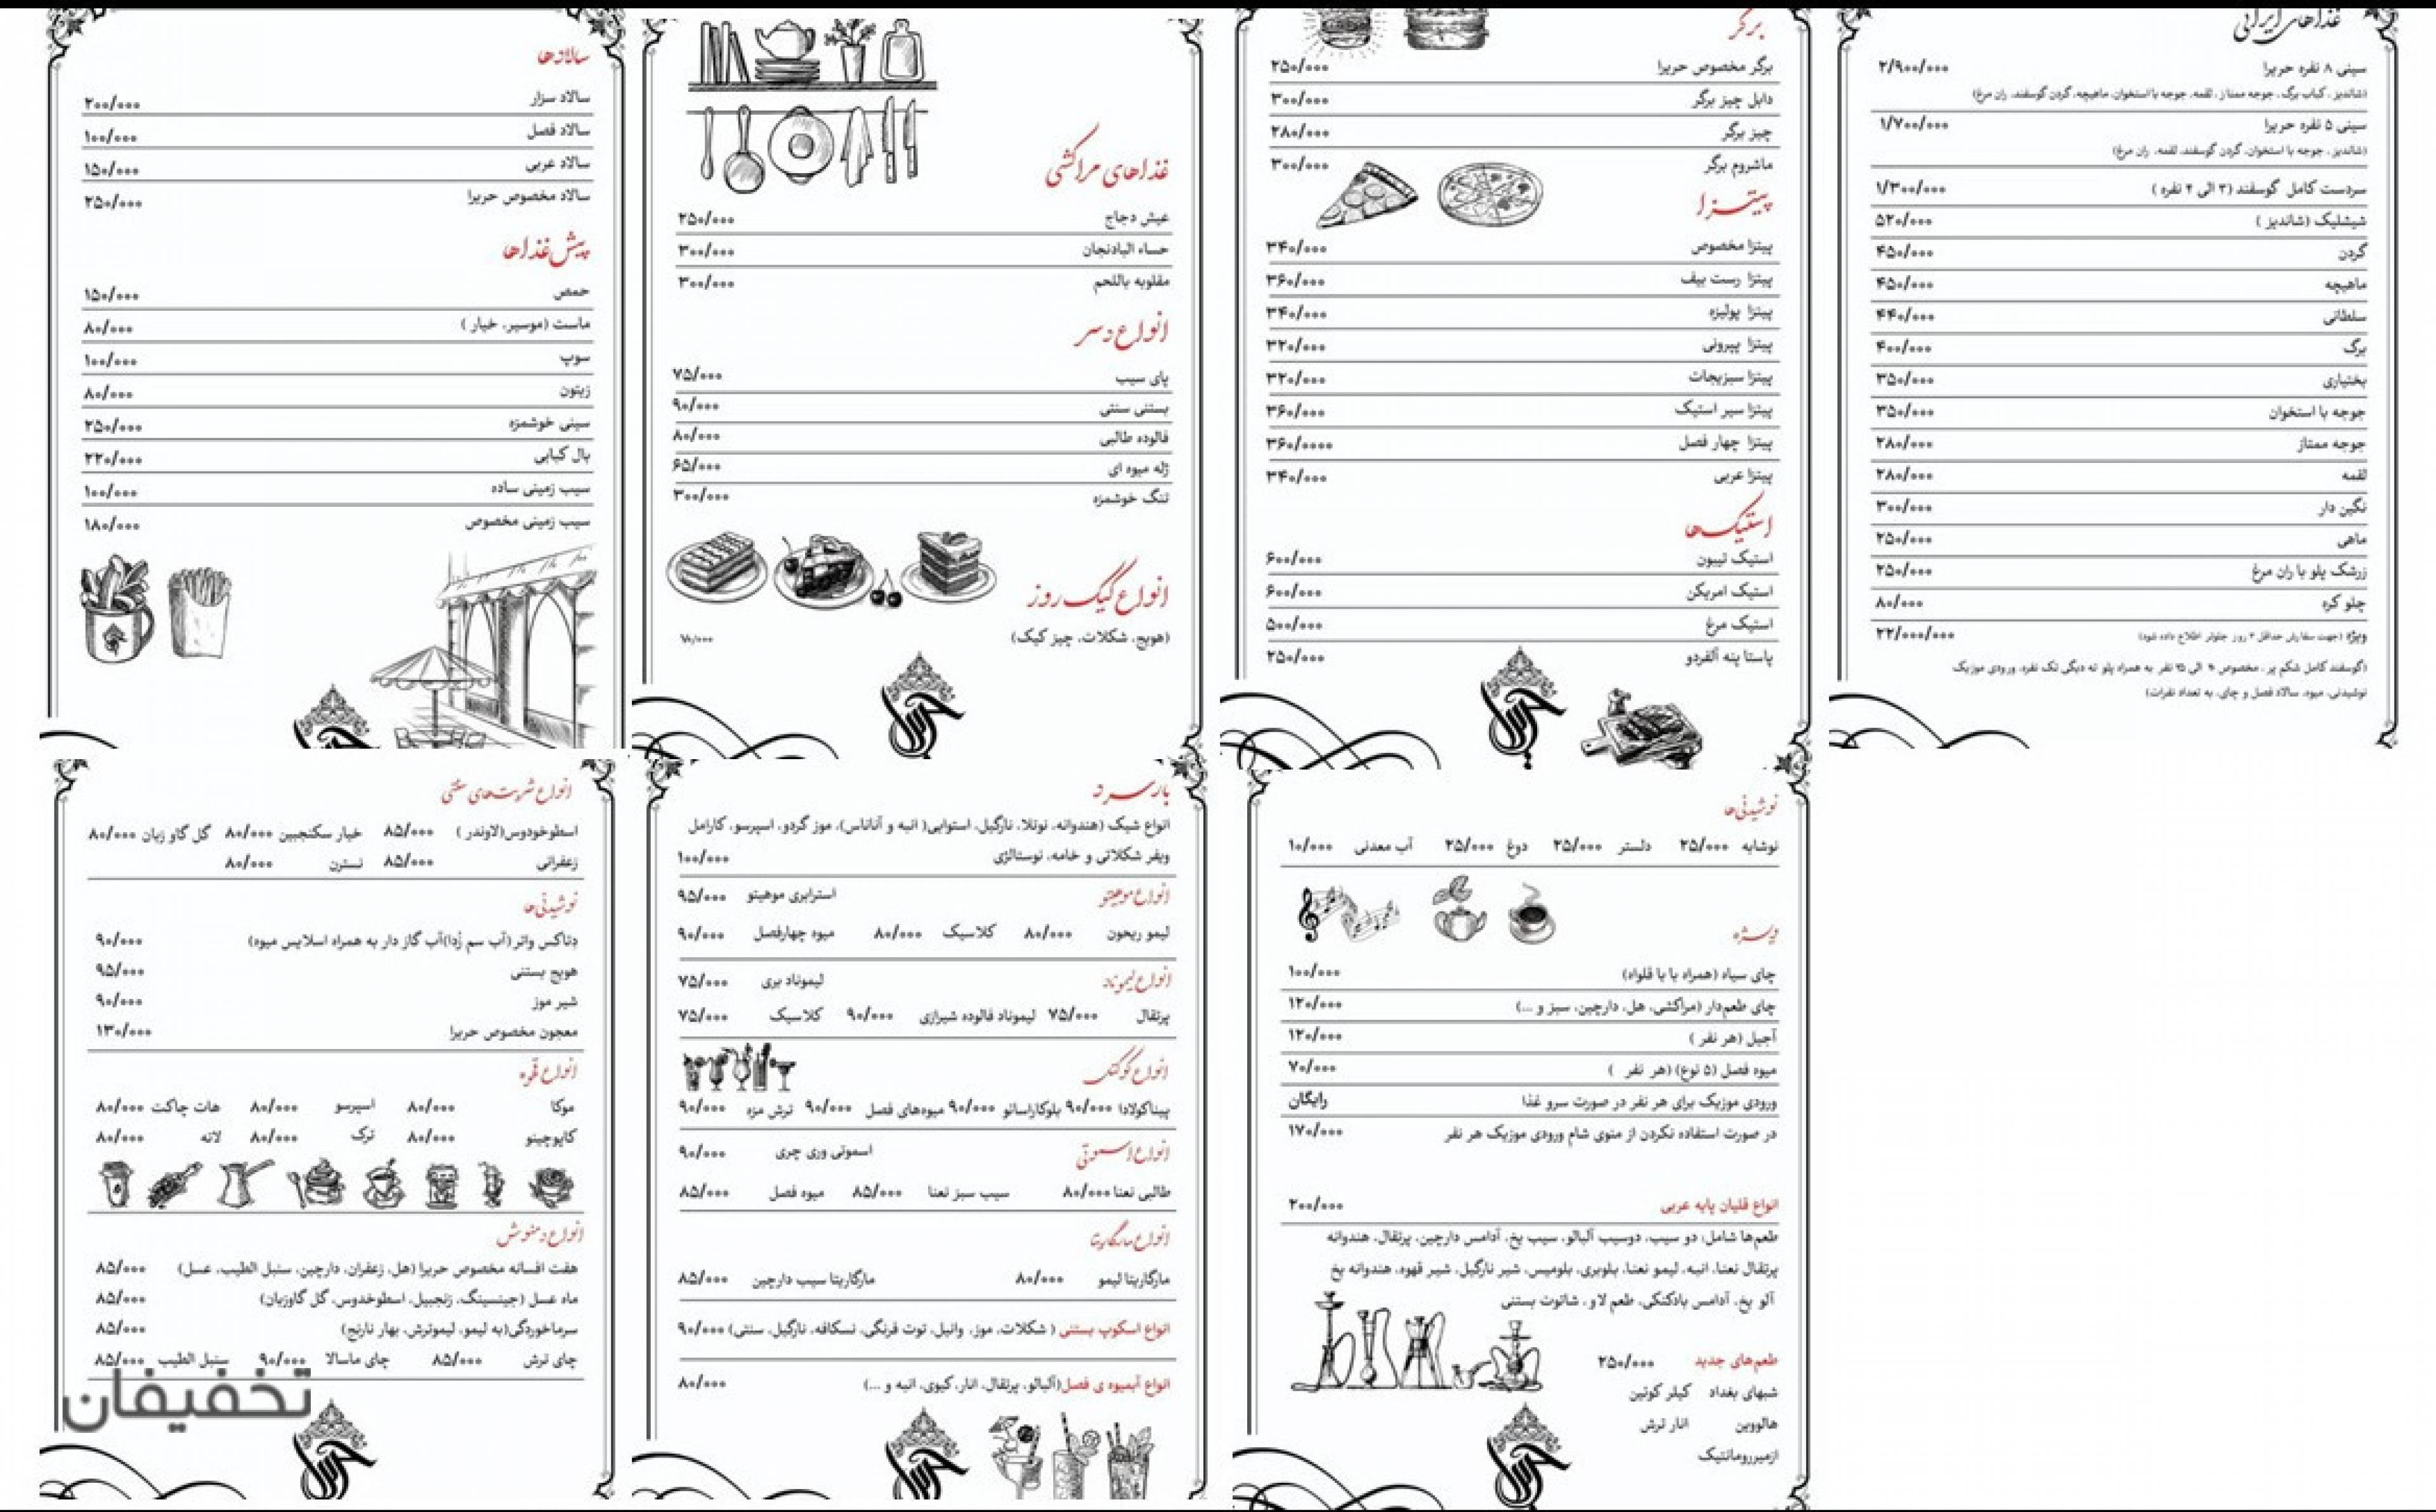 غذاهای ایرانی
سینی ۸ نفره حریرا ۲/۹۰۰/۰۰۰
(شاندیز ، کباب برگ ، جوجه ممتاز ، لقمه، جوجه با استخوان، ماهیچه، گردن گوسفند، ران مرغ)
سینی ۵ نفره حریرا ۱/۷۰۰/۰۰۰
(شاندیز ، جوجه با استخوان، گردن گوسفند، لقمه، ران مرغ)
سردست کامل گوسفند (۳ الی ۴ نفره ) ۱/۳۰۰/۰۰۰
شیشلیک (شاندیز ) ۵۲۰/۰۰۰
گردن ۴۵۰/۰۰۰
ماهیچه ۴۵۰/۰۰۰
سلطانی ۴۴۰/۰۰۰
برگ ۴۰۰/۰۰۰
بختیاری ۳۵۰/۰۰۰
جوجه با استخوان ۳۵۰/۰۰۰
جوجه ممتاز ۲۸۰/۰۰۰
لقمه ۲۸۰/۰۰۰
نگین دار ۳۰۰/۰۰۰
ماهی ۲۵۰/۰۰۰
زرشک پلو با ران مرغ ۲۵۰/۰۰۰
چلو کره ۸۰/۰۰۰
ویژه (جهت سفارش حداقل ۲ روز جلوتر اطلاع داده شود) ۲۲/۰۰۰/۰۰۰
(گوسفند کامل شکم پر ، مخصوص الی نفر به همراه پلو ته دیگی تک نفره، ورودی موزیک
نوشیدنی، میوه، سالاد فصل و چای، به تعداد نفرات)
برگر
برگر مخصوص حریرا ۲۵۰/۰۰۰
دابل چیز برگر ۳۰۰/۰۰۰
چیز برگر ۲۸۰/۰۰۰
ماشروم برگر ۳۰۰/۰۰۰
پیتزا
پیتزا مخصوص ۳۴۰/۰۰۰
پیتزا رست بیف ۳۶۰/۰۰۰
پیتزا پولیزه ۳۴۰/۰۰۰
پیتزا پپرونی ۳۲۰/۰۰۰
پیتزا سبزیجات ۳۲۰/۰۰۰
پیتزا سیر استیک ۳۶۰/۰۰۰
پیتزا چهار فصل ۳۶۰/۰۰۰۰
پیتزا عربی ۳۴۰/۰۰۰
استیک‌ها
استیک تیبون ۶۰۰/۰۰۰
استیک امریکن ۶۰۰/۰۰۰
استیک مرغ ۵۰۰/۰۰۰
پاستا پنه آلفردو ۲۵۰/۰۰۰
غذاهای مراکشی
عیش دجاج ۲۵۰/۰۰۰
حساء البادنجان ۳۰۰/۰۰۰
مقلوبه باللحم ۳۰۰/۰۰۰
انواع دسر
پای سیب ۷۵/۰۰۰
بستنی سنتی ۹۰/۰۰۰
فالوده طالبی ۸۰/۰۰۰
ژله میوه ای ۶۵/۰۰۰
تنگ خوشمزه ۳۰۰/۰۰۰
انواع کیک روز
(هویج، شکلات، چیز کیک) ۷۰/۰۰۰
حریرا
سالادها
سالاد سزار ۲۰۰/۰۰۰
سالاد فصل ۱۰۰/۰۰۰
سالاد عربی ۱۵۰/۰۰۰
سالاد مخصوص حریرا ۲۵۰/۰۰۰
پیش غذاها
حمص ۱۵۰/۰۰۰
ماست (موسیر، خیار ) ۸۰/۰۰۰
سوپ ۱۰۰/۰۰۰
زیتون ۸۰/۰۰۰
سینی خوشمزه ۲۵۰/۰۰۰
بال کبابی ۲۲۰/۰۰۰
سیب زمینی ساده ۱۰۰/۰۰۰
سیب زمینی مخصوص ۱۸۰/۰۰۰
نوشیدنی‌ها
نوشابه ۲۵/۰۰۰ دلستر ۲۵/۰۰۰ دوغ ۲۵/۰۰۰ آب معدنی ۱۰/۰۰۰
ویژه
چای سیاه (همراه با با قلواه) ۱۰۰/۰۰۰
چای طعم‌دار (مراکشی، هل، دارچین، سبز و ...) ۱۲۰/۰۰۰
آجیل (هر نفر ) ۱۲۰/۰۰۰
میوه فصل (۵ نوع) (هر نفر ) ۷۰/۰۰۰
ورودی موزیک برای هر نفر در صورت سرو غذا رایگان
در صورت استفاده نکردن از منوی شام ورودی موزیک هر نفر ۱۷۰/۰۰۰
انواع قلیان پایه عربی ۲۰۰/۰۰۰
طعم‌ها شامل: دو سیب، دوسیب آلبالو، سیب یخ، آدامس دارچین، پرتقال، هندوانه
پرتقال نعنا، انبه، لیمو نعنا، بلوبری، بلومیس، شیر نارگیل، شیر قهوه، هندوانه یخ
آلو یخ، آدامس بادکنکی، طعم لاو ، شاتوت بستنی
طعم‌های جدید ۲۵۰/۰۰۰
شبهای بغداد کیلر کوئین
هالووین انار ترش
ازمیررومانتیک
بار سرد
انواع شیک (هندوانه، نوتلا، نارگیل، استوایی( انبه و آناناس)، موز گردو، اسپرسو، کارامل
ویفر شکلاتی و خامه، نوستالژی ۱۰۰/۰۰۰
انواع موهیتو استرابری موهیتو ۹۵/۰۰۰
لیمو ریحون ۸۰/۰۰۰ کلاسیک ۸۰/۰۰۰ میوه چهارفصل ۹۰/۰۰۰
انواع لیموناد لیموناد بری ۷۵/۰۰۰
پرتقال ۷۵/۰۰۰ لیموناد فالوده شیرازی ۹۰/۰۰۰ کلاسیک ۷۵/۰۰۰
انواع کوکتل
پیناکولادا ۹۰/۰۰۰ بلوکاراسائو ۹۰/۰۰۰ میوه‌های فصل ۹۰/۰۰۰ ترش مزه ۹۰/۰۰۰
انواع اسموتی اسموتی وری چری ۹۰/۰۰۰
طالبی نعنا ۸۰/۰۰۰ سیب سبز نعنا ۸۵/۰۰۰ میوه فصل ۸۵/۰۰۰
انواع مارگاریتا
مارگاریتا لیمو ۸۰/۰۰۰ مارگاریتا سیب دارچین ۸۵/۰۰۰
انواع اسکوپ بستنی ( شکلات، موز، وانیل، توت فرنگی، نسکافه، نارگیل، سنتی) ۹۰/۰۰۰
انواع آبمیوه ی فصل(آلبالو، پرتقال، انار، کیوی، انبه و ...) ۸۰/۰۰۰
انواع شربت‌های سنتی
اسطوخودوس(لاوندر ) ۸۵/۰۰۰ خیار سکنجبین ۸۰/۰۰۰ گل گاو زبان ۸۰/۰۰۰
زعفرانی ۸۵/۰۰۰ نسترن ۸۰/۰۰۰
نوشیدنی‌ها
دتاکس واتر(آب سم زدا)آب گاز دار به همراه اسلایس میوه) ۹۰/۰۰۰
هویج بستنی ۹۵/۰۰۰
شیر موز ۹۰/۰۰۰
معجون مخصوص حریرا ۱۳۰/۰۰۰
انواع قهوه
موکا ۸۰/۰۰۰ اسپرسو ۸۰/۰۰۰ هات چاکت ۸۰/۰۰۰
کاپوچینو ۸۰/۰۰۰ ترک ۸۰/۰۰۰ لاته ۸۰/۰۰۰
انواع دمنوش
هفت افسانه مخصوص حریرا (هل، زعفران، دارچین، سنبل الطیب، عسل) ۸۵/۰۰۰
ماه عسل (جینسینگ، زنجبیل، اسطوخدوس، گل گاوزبان) ۸۵/۰۰۰
سرماخوردگی(به لیمو، لیموترش، بهار نارنج) ۸۵/۰۰۰
چای ترش ۸۵/۰۰۰ چای ماسالا ۹۰/۰۰۰ سنبل الطیب ۸۵/۰۰۰
تخفیفان